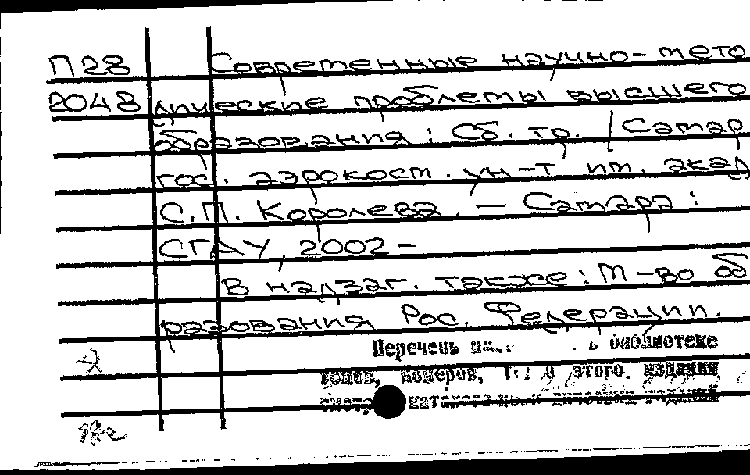 П28 Современные научно-мето
2048 дические проблемы высшего
образования : Сб. тр. / Самар
гос. аэрокосм. ун-т им. акад
С.П. Королева. - Самара :
СГАУ, 2002-
В надзаг. также: М-во об
разования Рос. Федерации.
Перечень в библиотеке
томов, номеров, этого издания